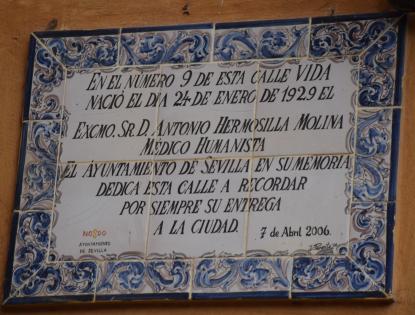 EN EL NÚMERO 9 DE ESTA CALLE VIDA
NACIÓ EL DÍA 24 DE ENERO DE 1929 EL
EXCMO. SR. D. ANTONIO HERMOSILLA MOLINA
MÉDICO HUMANISTA
EL AYUNTAMIENTO DE SEVILLA EN SU MEMORIA
DEDICA ESTA CALLE A RECORDAR
POR SIEMPRE SU ENTREGA
A LA CIUDAD.
7 de Abril 2006.
NO8DO
AYUNTAMIENTO
DE SEVILLA